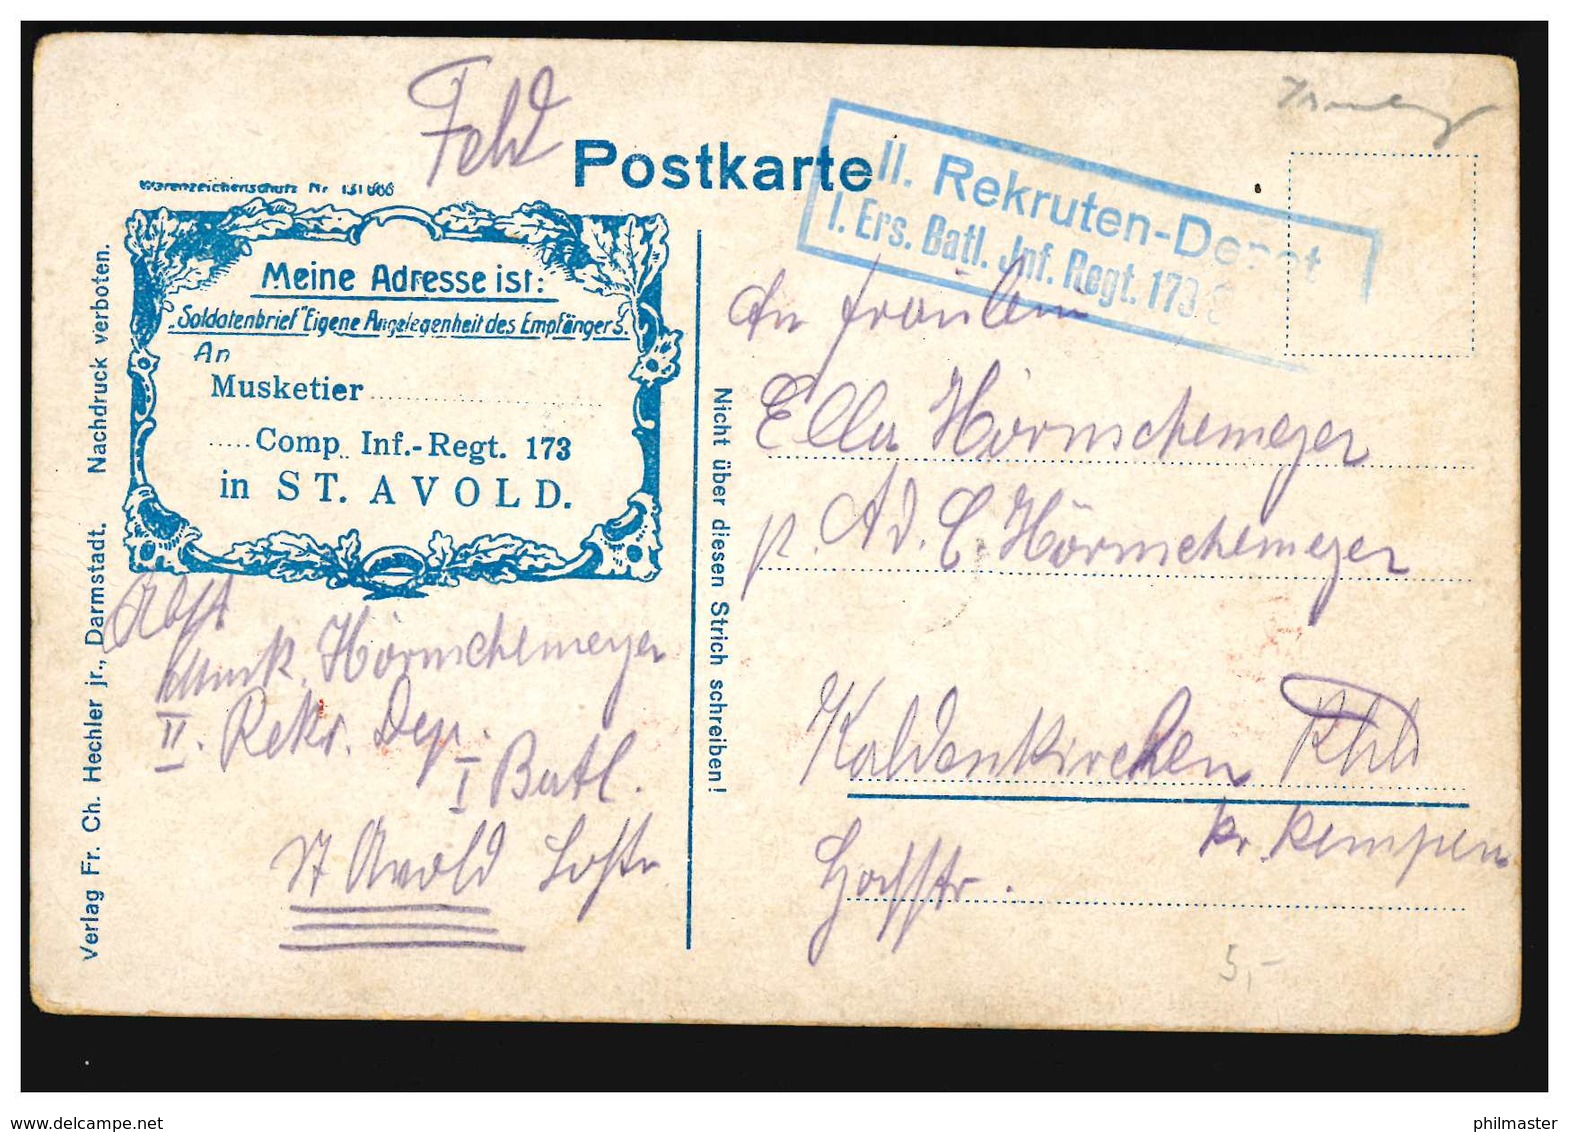 Feld
Postkarte
II. Rekruten-Depot
I. Ers. Batl. Inf. Regt. 173
Warenzeichenschutz Nr 131666
Meine Adresse ist:
„Soldatenbrief" Eigene Angelegenheit des Empfängers.
An
Musketier
Comp. Inf.-Regt. 173
in ST. AVOLD.
Verlag Fr. Ch. Hechler jr., Darmstadt. Nachdruck verboten.
Abst
Musk. Hörnschemeyer
II. Rekr. Dep.
I Batl.
St Avold Lothr
Nicht über diesen Strich schreiben!
An Fräulein
Ella Hörnschemeyer
p. Ad. C Hörnschemeyer
Kaldenkirchen Rhld
Kr. Kempen
Hochstr.
5,-
www.delcampe.net
philmaster